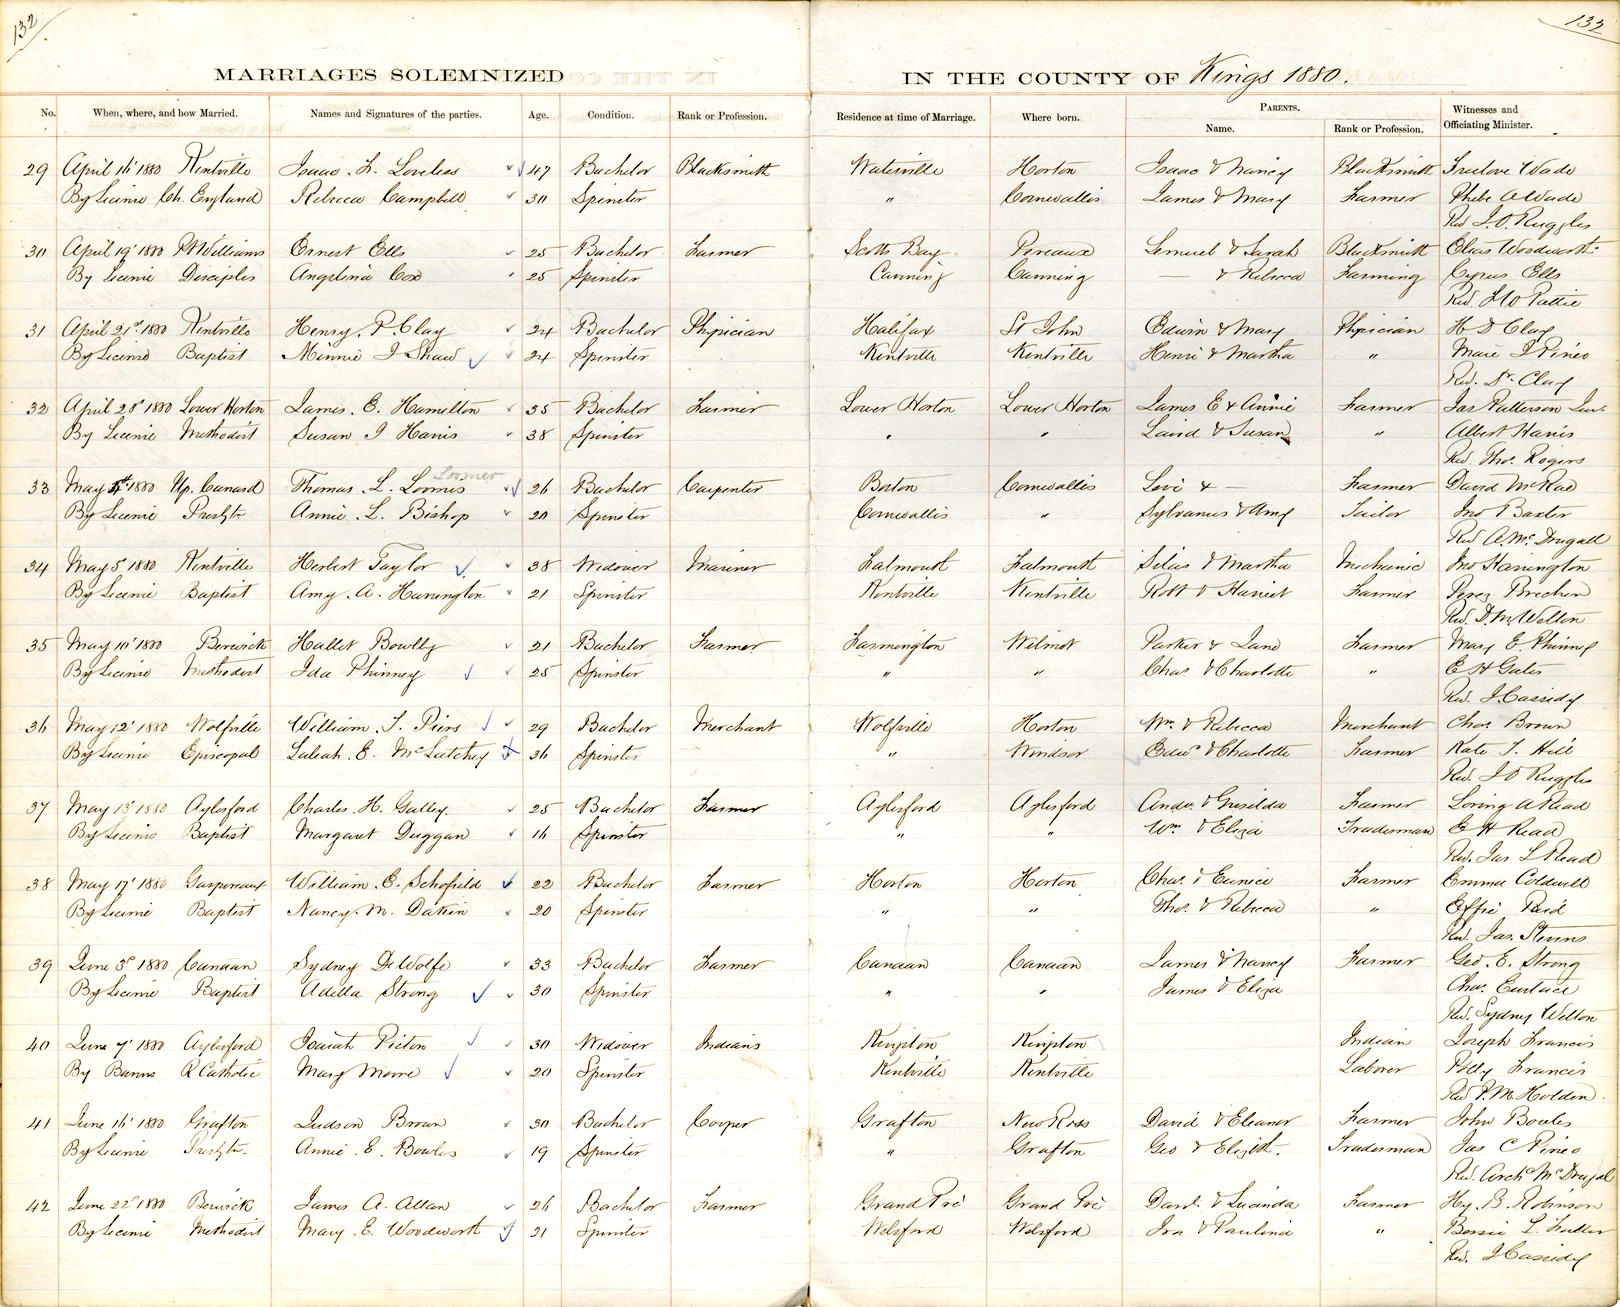 132
132
MARRIAGES SOLEMNIZED IN THE COUNTY OF Kings 1880.
No. When, where, and how Married. Names and Signatures of the parties. Age. Condition. Rank or Profession. Residence at time of Marriage. Where born. PARENTS. Name. Rank or Profession. Witnesses and Officiating Minister.
29 April 16' 1880 Kentville Isaac. L. Loveless 47 Bachelor Blacksmith Waterville Horton Isaac & Nancy Blacksmith Freelove Wade
By Licence Ch. England Rebecca Campbell 30 Spinster " Cornwallis James & Mary Farmer Phebe A Wade
Rev J. O. Ruggles
30 April 19' 1880 Pt Williams Ernest Ells 25 Bachelor Farmer Scotts Bay Pereaux Lemuel & Sarah Blacksmith Elias Woodworth
By Licence Disciples Angelina Cox 25 Spinster Canning Canning — & Rebecca Farming Cyrus Ells
Rev
31 April 21st 1880 Kentville Henry. P. Clay 24 Bachelor Physician Halifax St John Edwin & Mary Physician H D Clay
By Licence Baptist Minnie I Shaw 24 Spinster Kentville Kentville Henri & Martha " Marie I Pineo
Rev. Dr. Clay
32 April 28' 1880 Lower Horton James. E. Hamilton 35 Bachelor Farmer Lower Horton Lower Horton James E & Annie Farmer Jas Patterson Jun.
By Licence Methodist Susan I Harris 38 Spinster " " Laird & Susan " Albert Harris
Rev. Thos. Rogers
33 May 4th 1880 Up. Canard Thomas. L. Loomis Loomer 26 Bachelor Carpenter Boston Cornwallis Levi & — Farmer David McRae
By Licence Presbtn Annie. L. Bishop 20 Spinster Cornwallis " Sylvanus & Amy Tailor Jno Baxter
Rev A. Mc Dougall
34 May 5' 1880 Kentville Herbert Taylor 38 Widower Mariner Falmouth Falmouth Silas & Martha Mechanic Jno Harrington
By Licence Baptist Amy. A. Harrington 21 Spinster Kentville Kentville Robt & Harriet Farmer Perez
Rev. D. M. Welton
35 May 10' 1880 Berwick Hallet Bowlby 21 Bachelor Farmer Farmington Wilmot Parker & Jane Farmer Mary E. Phinney
By Licence Methodist Ida Phinney 25 Spinster " " Chas. & Charlotte " E H Gates
Rev. J Cassidy
36 May 12' 1880 Wolfville William. J. Piers 29 Bachelor Merchant Wolfville Horton Wm. & Rebecca Merchant Chas. Brown
By Licence Episcopal Laleah. E. McLatchey 36 Spinster " Windsor Edwd & Charlotte Farmer Kate T. Hill
Rev. J O Ruggles
37 May 13' 1880 Aylesford Charles. H. Gulley 25 Bachelor Farmer Aylesford Aylesford Andw. & Griselda Farmer Loring A Read
By Licence Baptist Margaret Duggan 16 Spinster " " Wm & Eliza Tradesman E H Read
Rev. Jas L Read
38 May 17' 1880 Gaspereaux William. E. Schofield 22 Bachelor Farmer Horton Horton Chas. & Eunice Farmer Emma Coldwell
By Licence Baptist Nancy. M. Dakin 20 Spinster " " Thos. & Rebecca " Effie Reid
Rev. Jas. Stevens
39 June 3d 1880 Canaan Sydney DeWolfe 33 Bachelor Farmer Canaan Canaan James & Nancy Farmer Geo. E. Strong
By Licence Baptist Adella Strong 30 Spinster " " James & Eliza Chas. Eustace
Rev. Sydney Welton
40 June 7' 1880 Aylesford Isaiah Picton 30 Widower Indians Kingston Kingston Indian Joseph Francis
By Banns R Catholic Mary Morre 20 Spinster Kentville Kentville Laborer Polly Francis
Rev P. M. Holden.
41 June 16' 1880 Grafton Judson Brown 30 Bachelor Cooper Grafton New Ross David & Eleanor Farmer John Bowles
By Licence Presbtn. Annie. E. Bowles 19 Spinster " Grafton Geo & Elizbth. Tradesman Jas C Pineo
Rev. Archd McDougal
42 June 22d 1880 Berwick James A. Allan 26 Bachelor Farmer Grand Pré Grand Pré Danl. & Lucinda Farmer Hy. B. Robinson
By Licence Methodist Mary. E. Woodworth 21 Spinster Welsford Welsford Ira & Paulina " Bessie L. Fuller
Rev. J Cassidy